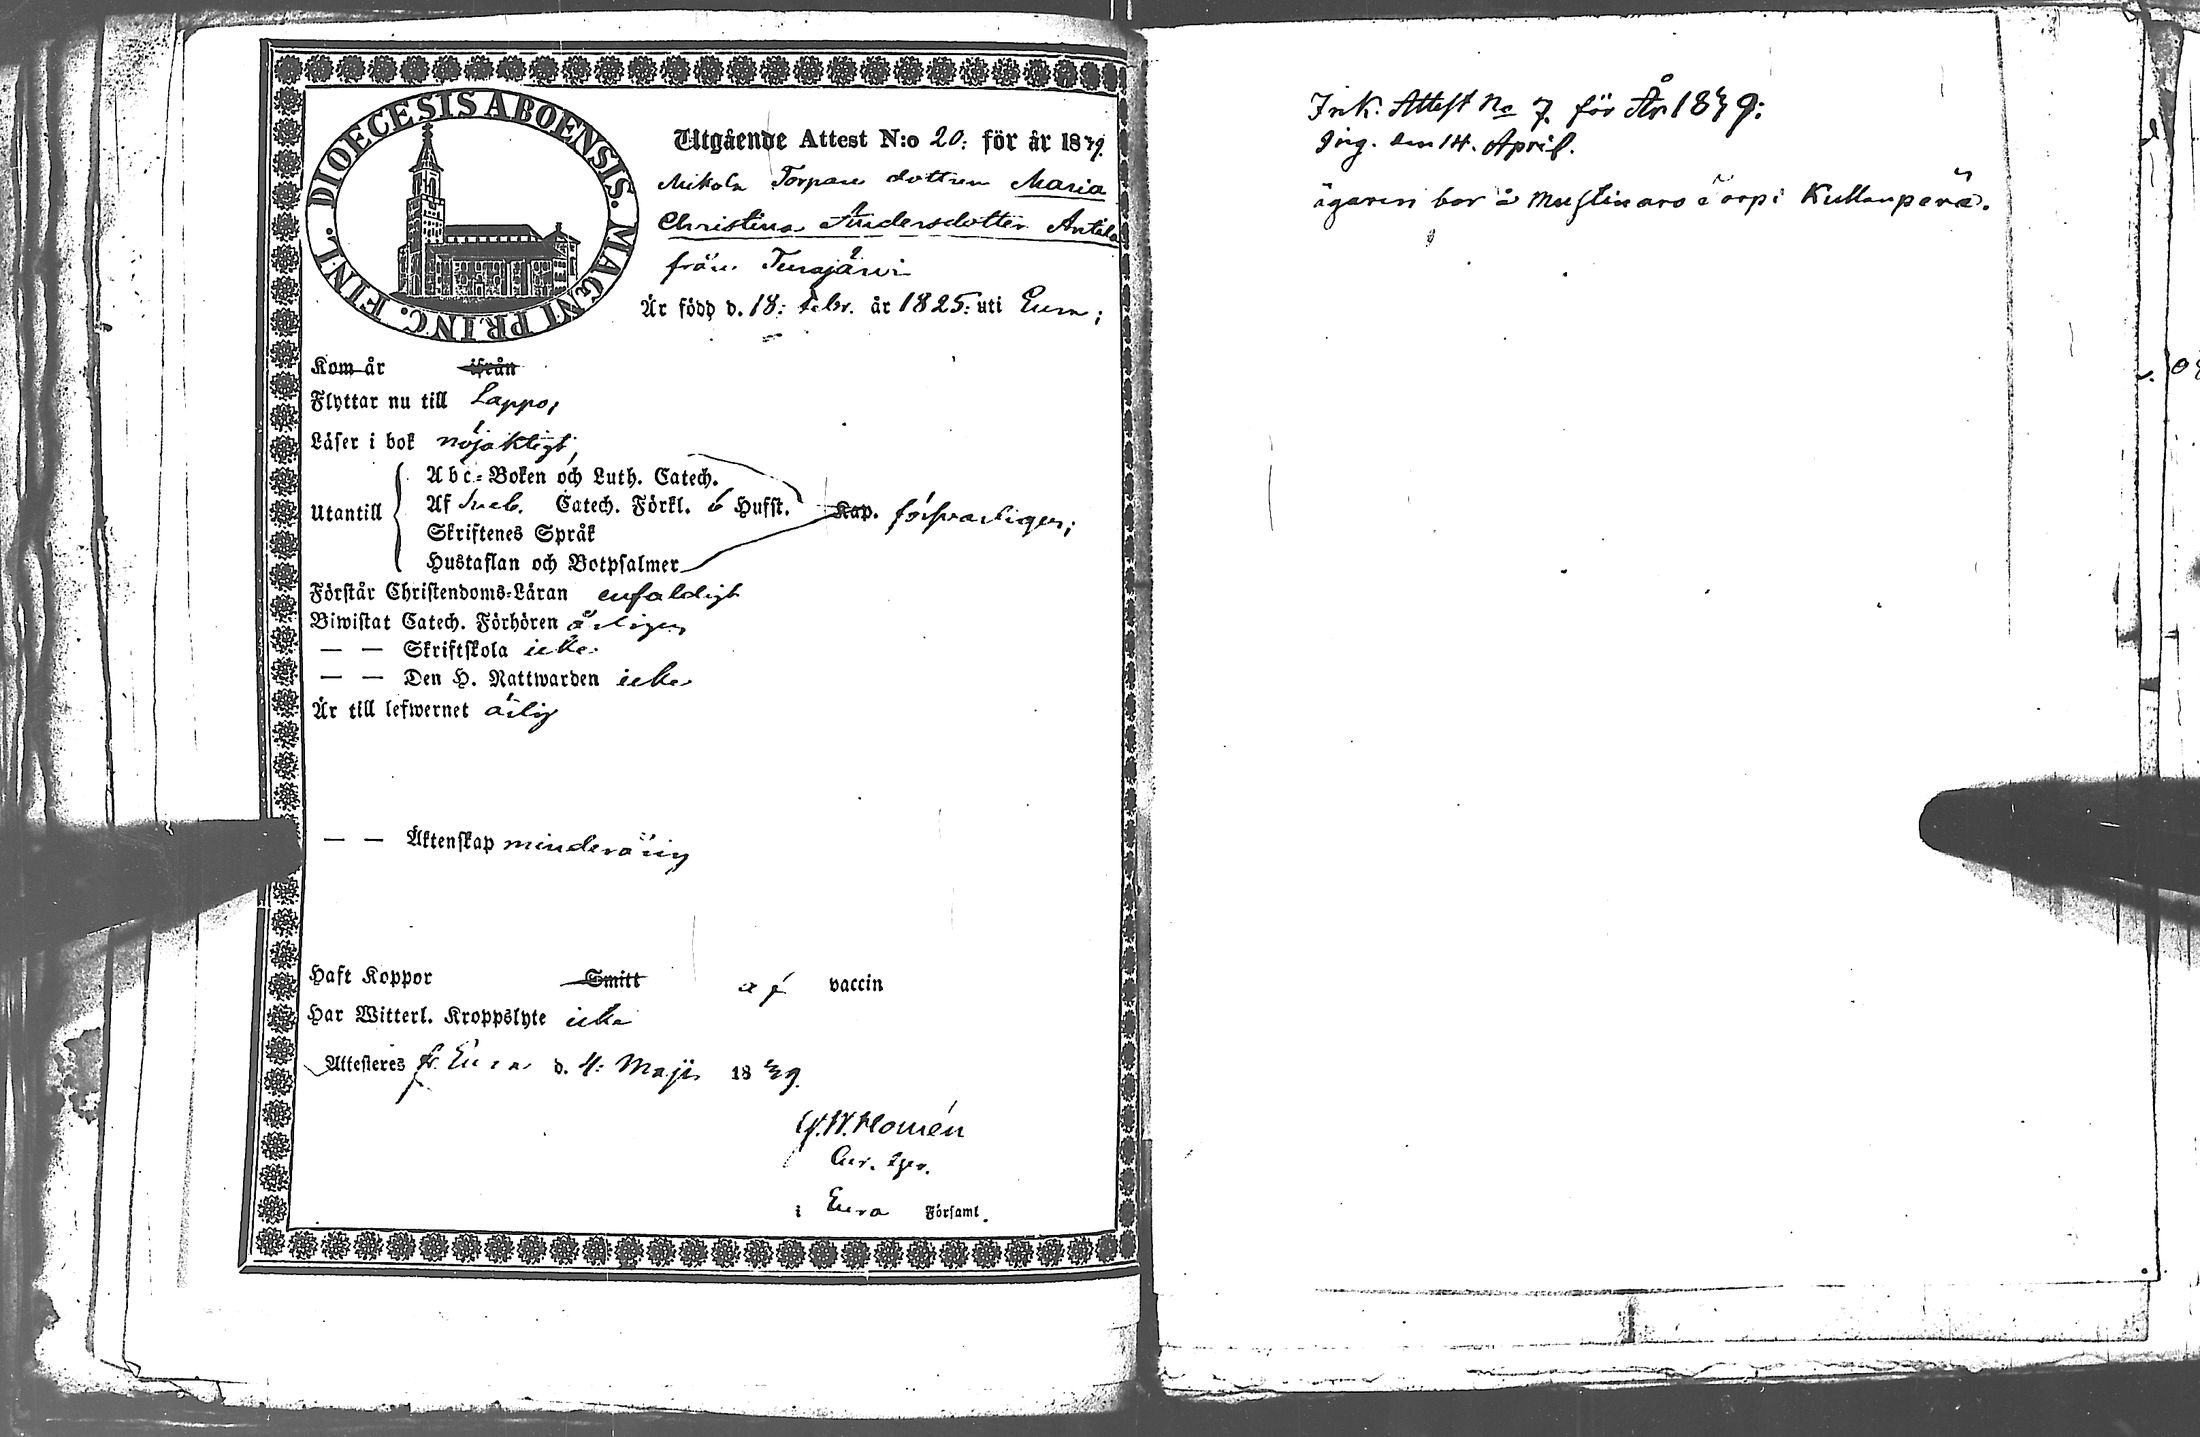 DIOECESIS ABOENSIS. MAGNI PRINC. FINL.
Utgående Attest N:o 20: för år 1839.
Mikola Torpare dottren Maria
Christina Andersdotter Antila
från Turajärvi
Är född d. 18: Febr. år 1825: uti Eura;
Kom år ifrån
Flyttar nu till Lappo;
Läser i bok nöjaktigt,
Utantill
Abc-Boken och Luth. Catech.
Af Sveb. Catech. Förkl. 6 Hufst. Kap. försvarligen;
Skriftenes Språk
Hustaflan och Botpsalmer
Förstår Christendoms-Läran enfaldigt
Biwistat Catech. Förhören årligen
— — Skriftskola icke
— — Den H. Nattwarden icke
Är till lefwernet ärlig
— — Äktenskap minderårig
Haft Koppor Smitt af vaccin
Har Witterl. Kroppslyte icke
Attesteres fr. Eura d. 4: Maji 1839.
Homén
i Eura Församl.
Ink. Attest No 7. för År 1839:
Ing. den 14. April.
ägaren bor å Torp i Kullanperä.